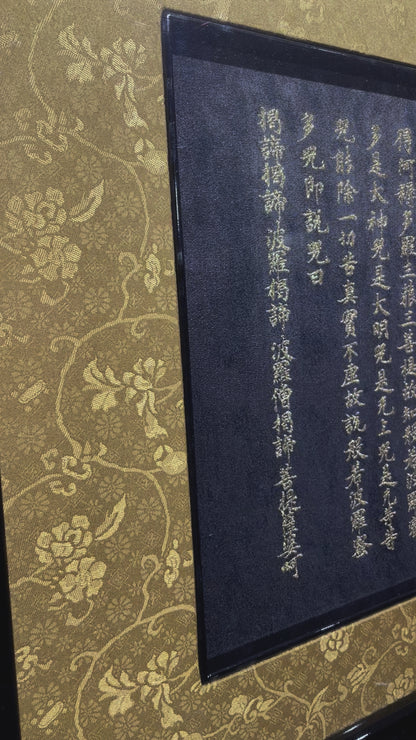 得阿耨多羅三藐三菩提故知般若波羅蜜
多是大神咒是大明咒是无上咒是无等等
咒能除一切苦真實不虛故說般若波羅蜜
多咒即說咒曰
揭諦揭諦 波羅揭諦 波羅僧揭諦 菩提